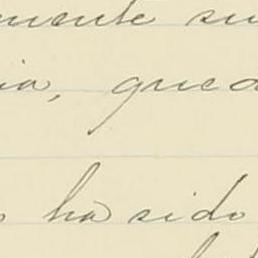 mente su
ia, queda
ha sido